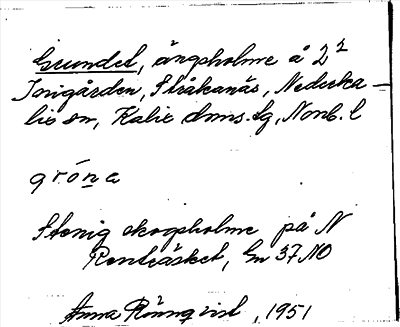 Grundel, ängsholme å 2²
Jonigården, Stråkanäs, Nederka-
lix sn, Kalix dms. lg, Norrb. l
gróna
Stenig skogsholme på N
Renträsket, Gn 37 NO
Anna Rönnqvist, 1951